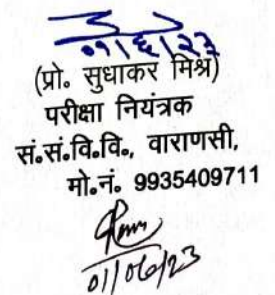 ०१/६/२३
(प्रो. सुधाकर मिश्र)
परीक्षा नियंत्रक
सं.सं.वि.वि., वाराणसी,
मो.नं. 9935409711
01/06/23